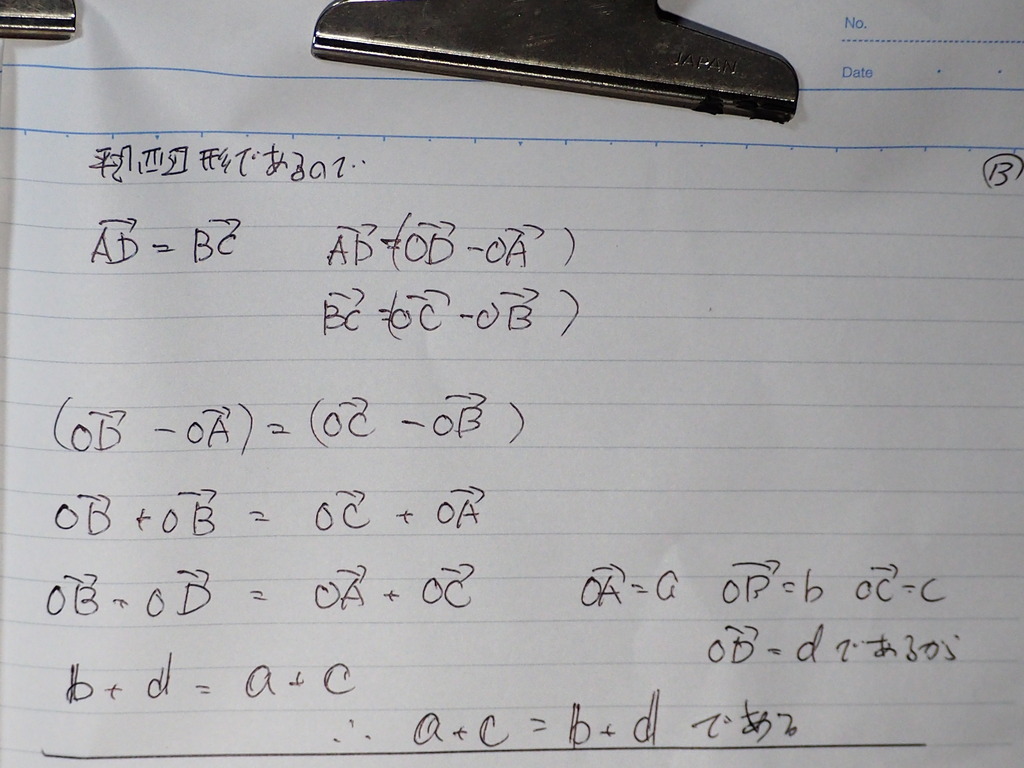 JAPAN
No.
Date
平行四辺形であるので
B
→AD = →BC →AD =(→OD - →OA )
→BC =(→OC - →OB )
(→OD - →OA) = (→OC - →OB )
→OD + →OB = →OC + →OA
→OB + →OD = →OA + →OC →OA = a →OB = b →OC = c
→OD = d であるから
b + d = a + c
∴ a + c = b + d である